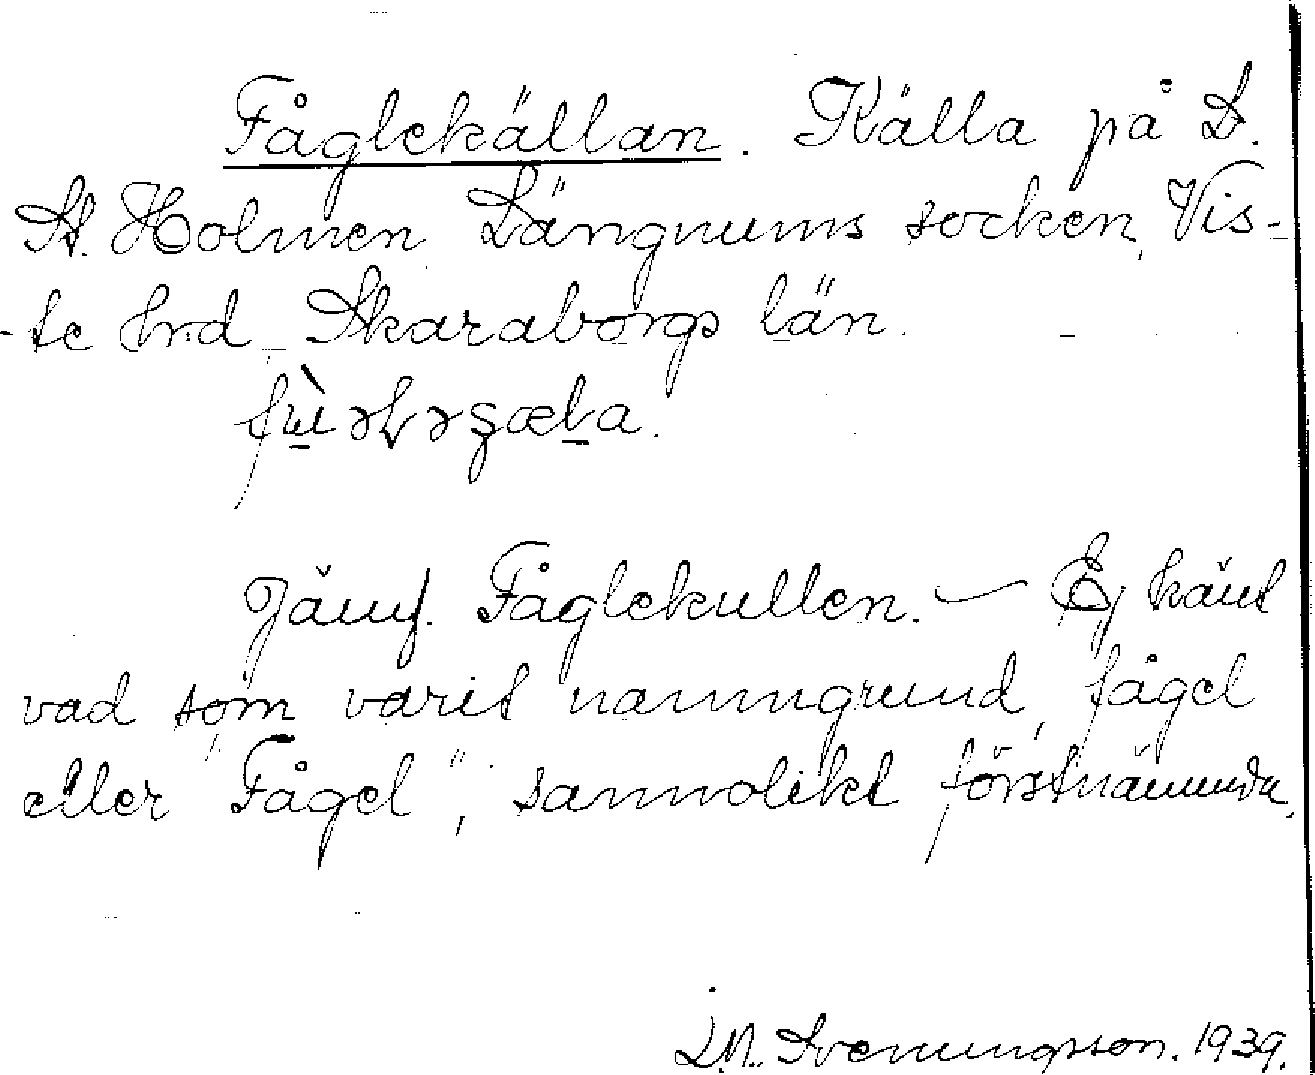 Fåglekällan. Källa på L.
St. Holmen Längnums socken, Vis-
-te hrd Skaraborgs län.
Jämf. Fåglekullen. — Ej känt
vad som varit namngrund, fågel
eller "Fågel", sannolikt förstnämnda.
Svenungsson. 1939.